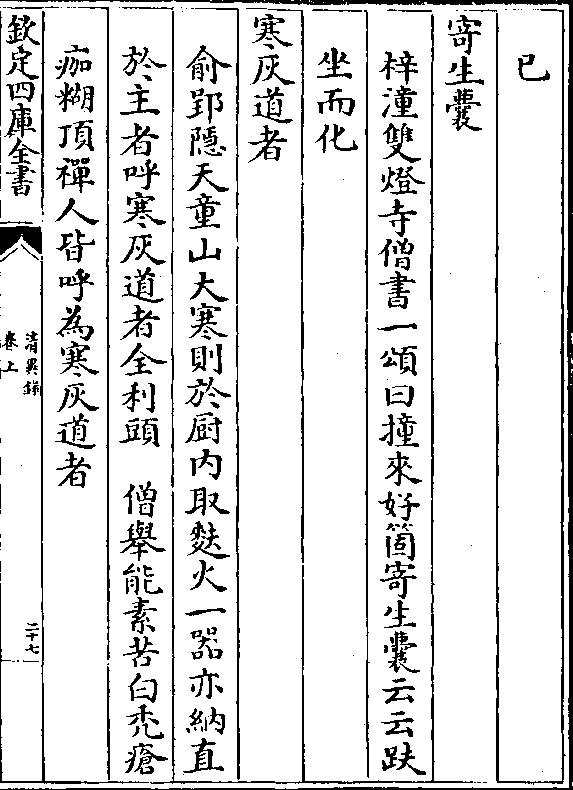 已
寄生囊
梓潼雙燈寺僧書一頌曰撞來好箇寄生囊云云趺
坐而化
寒灰道者
俞郢隱天童山大寒則於厨内取麩火一器亦納直
於主者呼寒灰道者全利頭　僧舉能素苦白禿瘡
痂糊頂禪人皆呼為寒灰道者
欽定四庫全書
清異錄
卷上
二十七